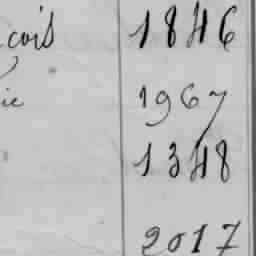 çois 1846
ie 1967
1348
2017